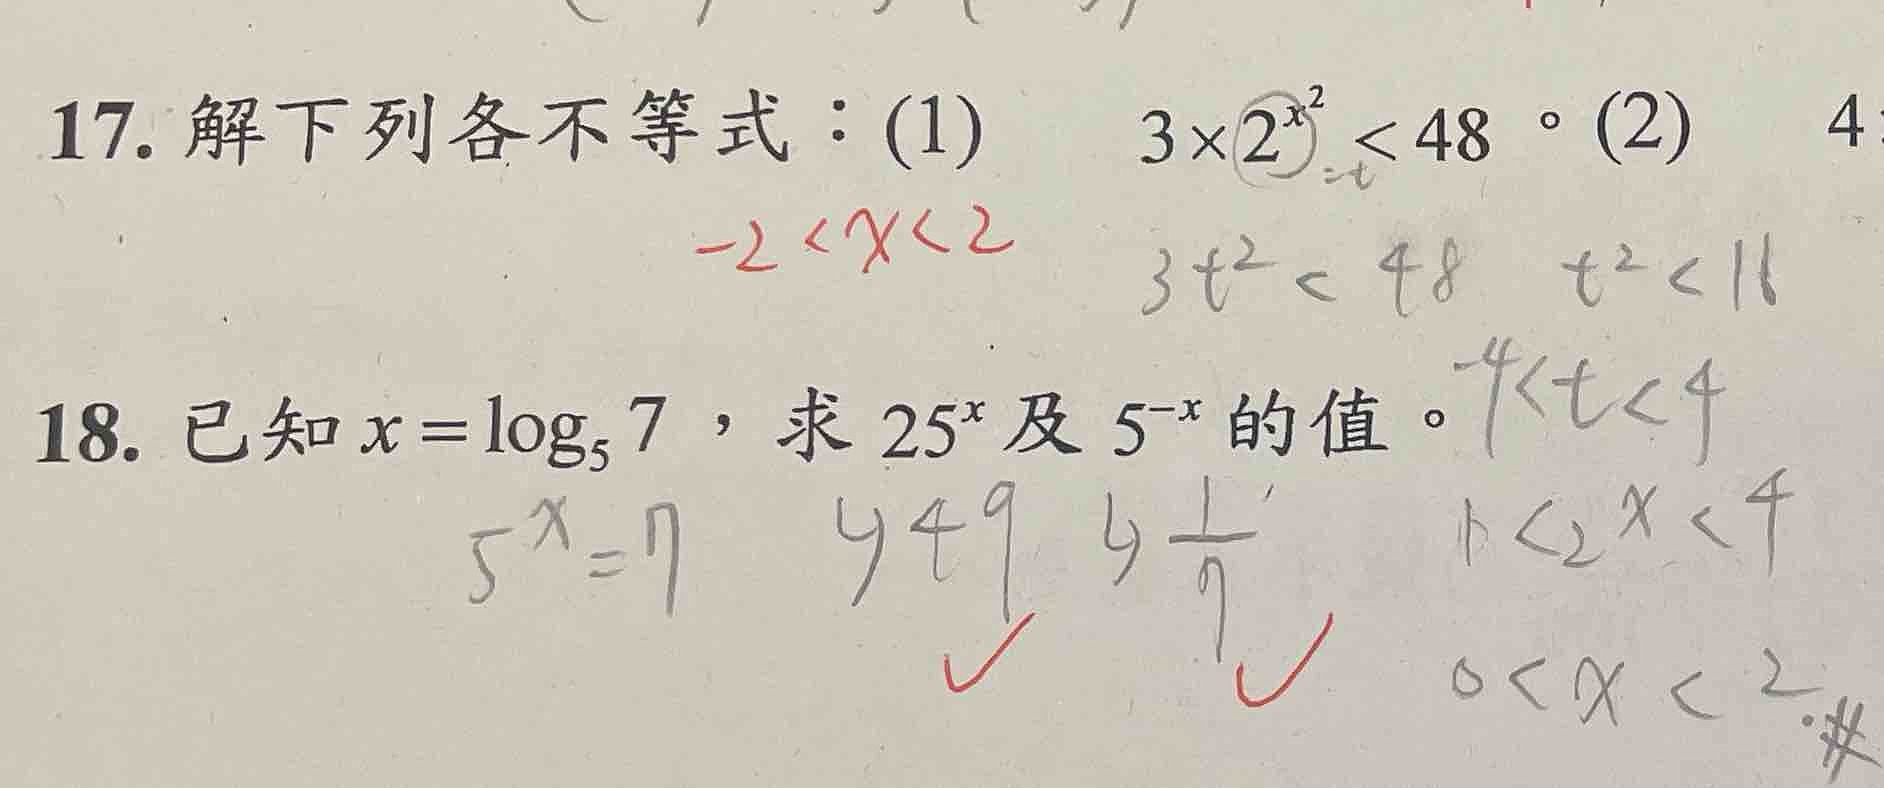 17. 解下列各不等式：(1) 3×2^{x^2} < 48 。(2) 4
=t
-2 < x < 2
3t² < 48 t² < 16
18. 已知 x = log₅ 7，求 25^x 及 5^{-x} 的值。
-4 < t < 4
5^x = 7 49 1/7
< 2^x < 4
0 < x < 2